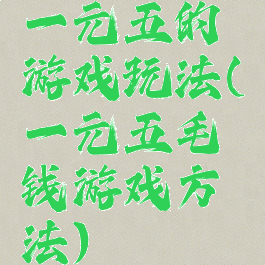 一元五的
游戏玩法(
一元五毛
钱游戏方
法)